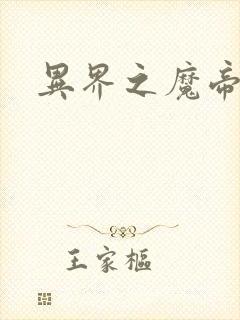 異界之魔帝
王家樞